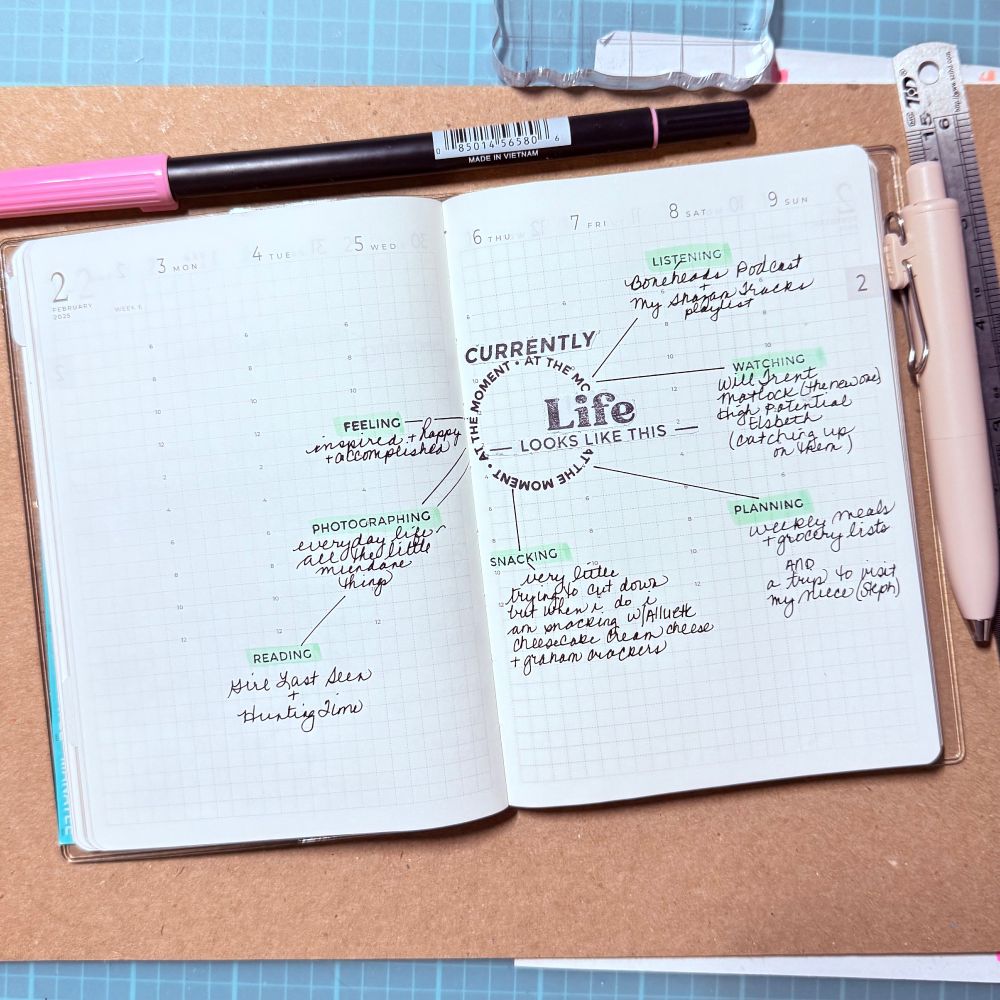 0 85014 56580 6
MADE IN VIETNAM
TSDO®
http://www.
15
16
2
FEBRUARY
2025
WEEK 6
3 MON
4 TUE
5 WED
6 THU
7 FRI
8 SAT
9 SUN
2
CURRENTLY
• AT THE MOMENT • AT THE MOMENT • AT THE MOMENT
Life
— LOOKS LIKE THIS —
FEELING
inspired + happy
+ accomplished
PHOTOGRAPHING
everyday life -
all the little
mundane
things
READING
Girl Last Seen
+
Hunting Time
LISTENING
Boneheads Podcast
+
My Shazam Tracks
playlist
WATCHING
Will Trent
Matlock (the new one)
High Potential
Elsbeth
(catching up
on them)
PLANNING
weekly meals
+ grocery lists
AND
a trip to visit
my niece (Steph)
SNACKING
very little
trying to cut down
but when i do i
am snacking w/Allulette
cheesecake cream cheese
+ graham crackers